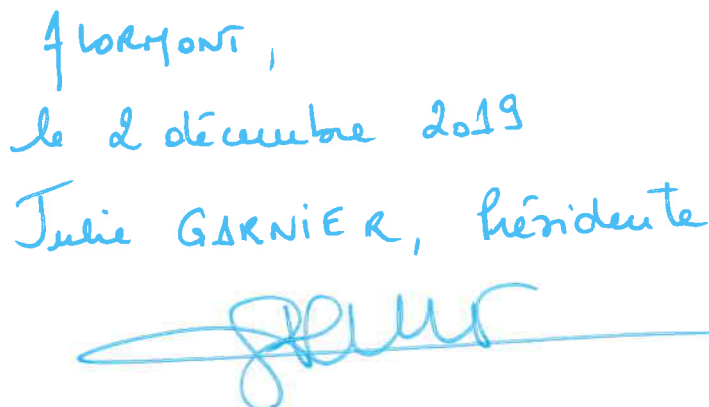 A LORMONT,
le 2 décembre 2019
Julie GARNIER, Présidente